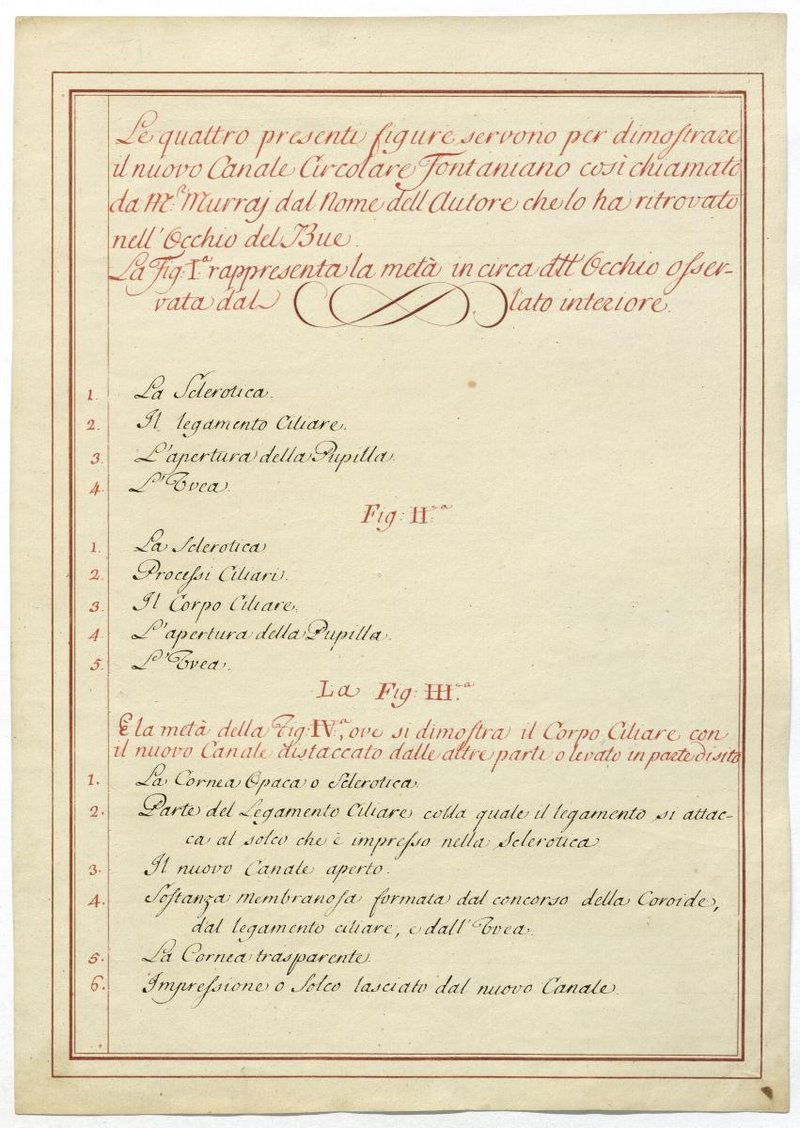 Le quattro presenti figure servono per dimostrare
il nuovo Canale Circolare Fontaniano così chiamato
da M.r Murraj dal Nome dell'Autore che lo ha ritrovato
nell'Occhio del Bue.
La Fig: I.a rappresenta la metà in circa dell'Occhio osser-
vata dal lato interiore.
1. La Sclerotica.
2. Il legamento Ciliare.
3. L'apertura della Pupilla.
4. L'Uvea.
Fig: II.a
1. La Sclerotica
2. Processi Ciliari.
3. Il Corpo Ciliare.
4. L'apertura della Pupilla.
5. L'Uvea.
La Fig: III.a
È la metà della Fig: IV.a, ove si dimostra il Corpo Ciliare con
il nuovo Canale distaccato dalle altre parti o levato in parte di sito
1. La Cornea Opaca o Sclerotica.
2. Parte del Legamento Ciliare colla quale il legamento si attac-
ca al solco che è impresso nella Sclerotica.
3. Il nuovo Canale aperto.
4. Sostanza membranosa formata dal concorso della Coroide,
dal legamento ciliare, e dall'Uvea.
5. La Cornea trasparente.
6. Impressione o Solco lasciato dal nuovo Canale.